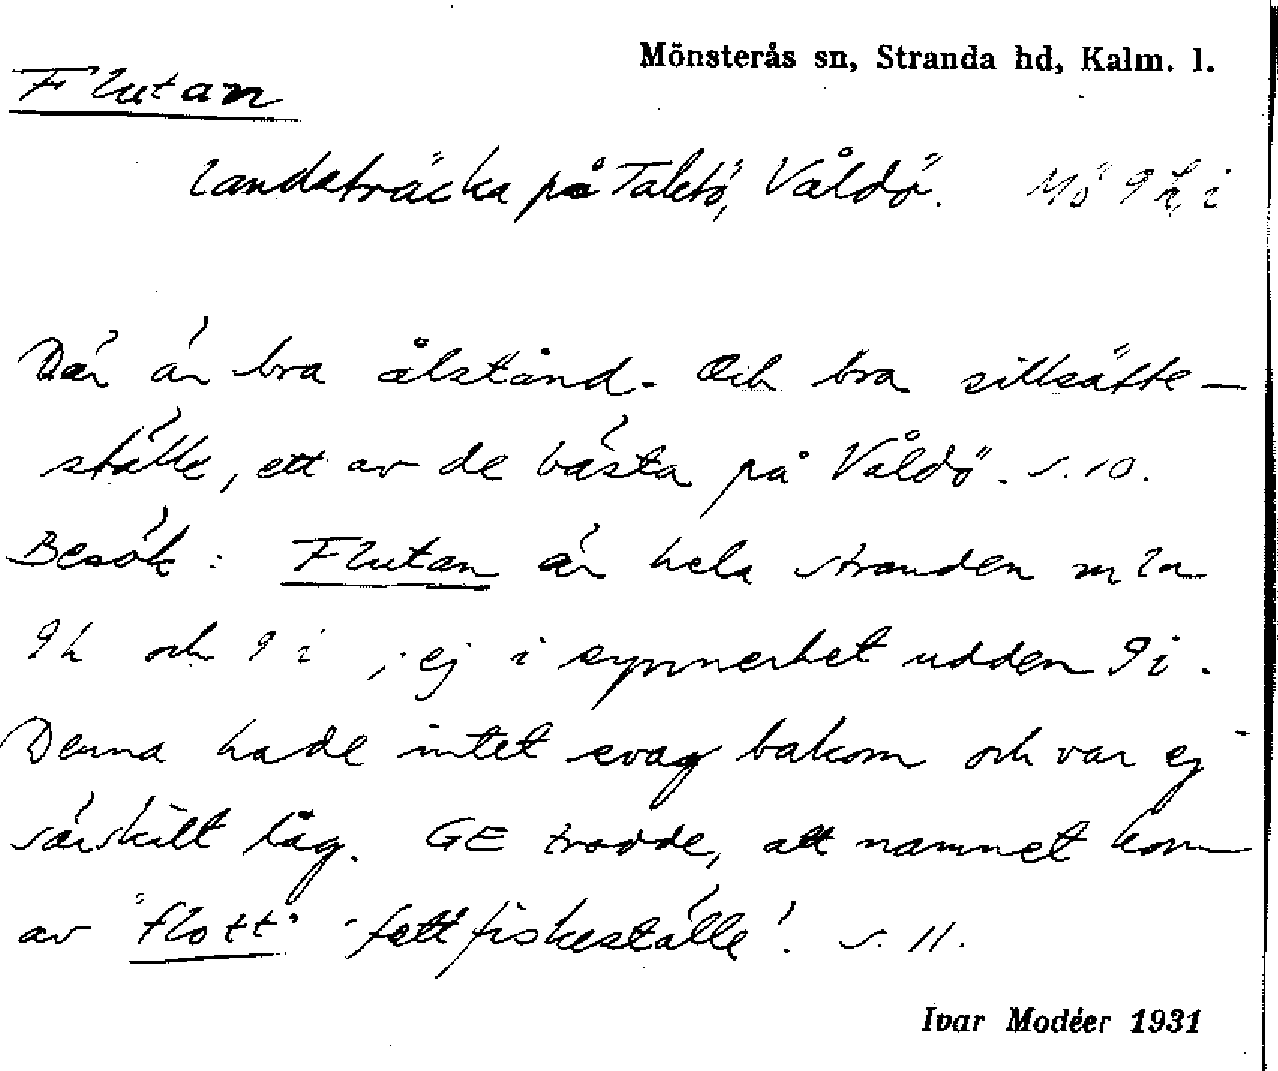 Mönsterås sn, Stranda hd, Kalm. l.
Flutan
Landsträcka på Taletö, Våldö. Mö 9 h, i
Där är bra ålstånd. Och bra sillsätte-
ställe, ett av de bästa på Våldö. s. 10.
Besök: Flutan är hela stranden mln
9h och 9i, ej i synnerhet udden 9i.
Denna hade intet svag bakom och var ej
särskilt låg. GE trodde, att namnet kom
av "flott" 'fett fiskeställe'. s. 11.
Ivar Modéer 1931